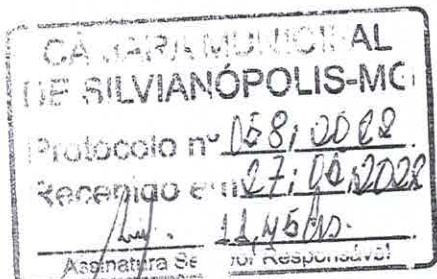 CÂMARA MUNICIPAL
DE SILVIANÓPOLIS-MG
Protocolo nº 058/2022
Recebido em 27/
11,45 hs.
Assinatura Servidor Responsável